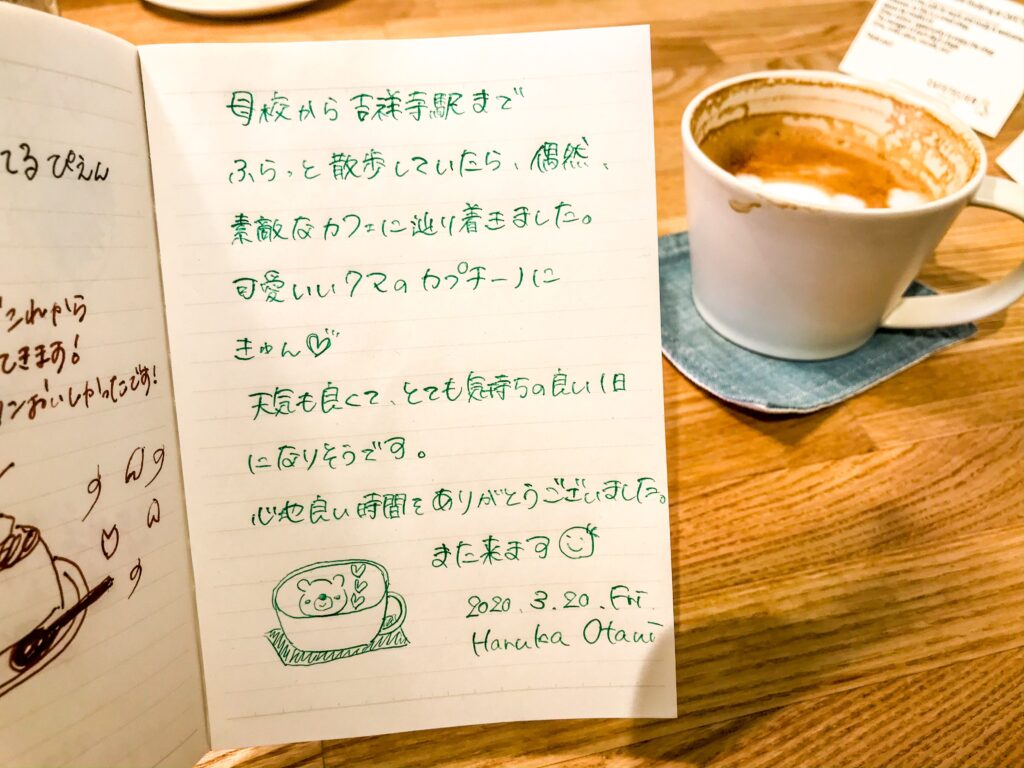 てるぴえん
これから
てきます!
おいしかったです!
母校から吉祥寺駅まで
ふらっと散歩していたら、偶然、
素敵なカフェに辿り着きました。
可愛いいクマのカプチーノに
きゅん♡
天気も良くて、とても気持ちの良い1日
になりそうです。
心地良い時間をありがとうございました。
また来ます
2020.3.20.Fri.
Haruka Otani